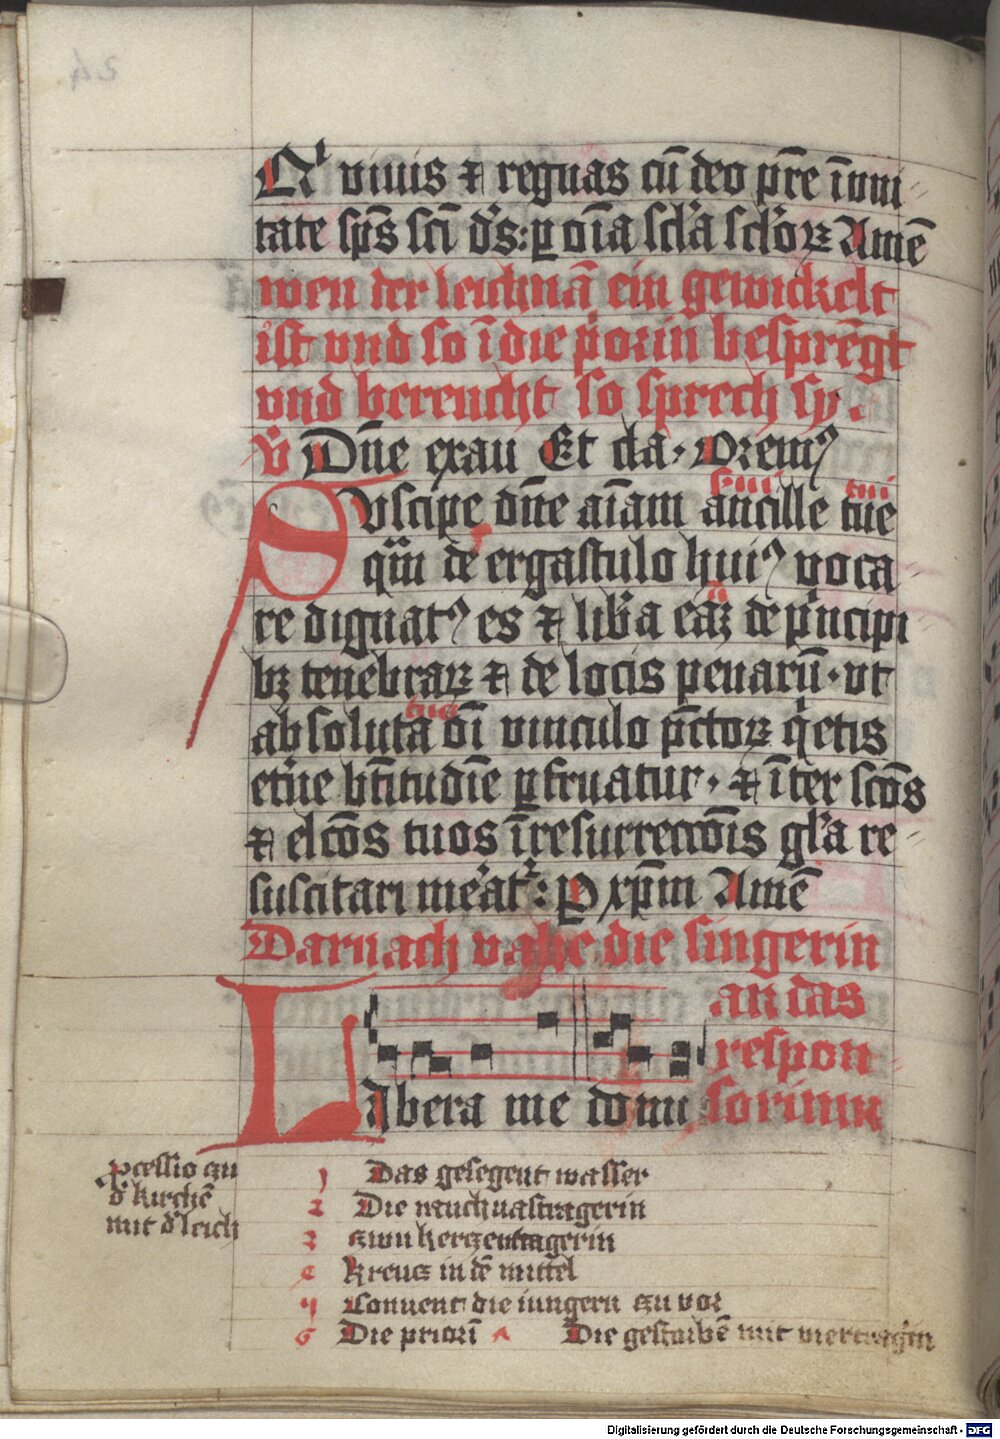 Qͥ viuis ⁊ regnas cū deo pr̄e ī vni
tate sp̄s sc̄i d's: ꝑ oīa scl'a scl'oꝝ Amē
wen der leichnā ein gewickelt
ist vnd so ī die priorin besprēgt
vnd bereucht so sprech sy.
℣ Dn̄e exau Et da. Oremꝰ
Svscipe dn̄e aīam ancille tue
serui tui
qūi de ergastulo huiꝰ voca
re dignatꝰ es ⁊ lib'a eaꝫ de pͥncipi
bꝫ tenebraꝝ ⁊ de locis penarū. vt
absoluta oī vinculo pc̄toꝝ qͥetis
tus
et'ne bt̄itudīe ꝑfruatur. ⁊ īter sc̄os
⁊ elc̄os tuos ī resurrecc̄ōis gl'a re
suscitari me'at': Ꝑ xp̄m Amē
Darnach vahe die singerin
an das
respon
sorium
Libera me domi
ꝓcessio zu
d' kirchē
mit d' leich
1 Das gesegent wasser
2 Die rauchvastragerin
3 zwu kerzentragerin
4 kreucz in dē mittel
5 Conuent die iungern zu vor
6 Die priorī Die gestorbē mit viertragͥn
Digitalisierung gefördert durch die Deutsche Forschungsgemeinschaft - DFG